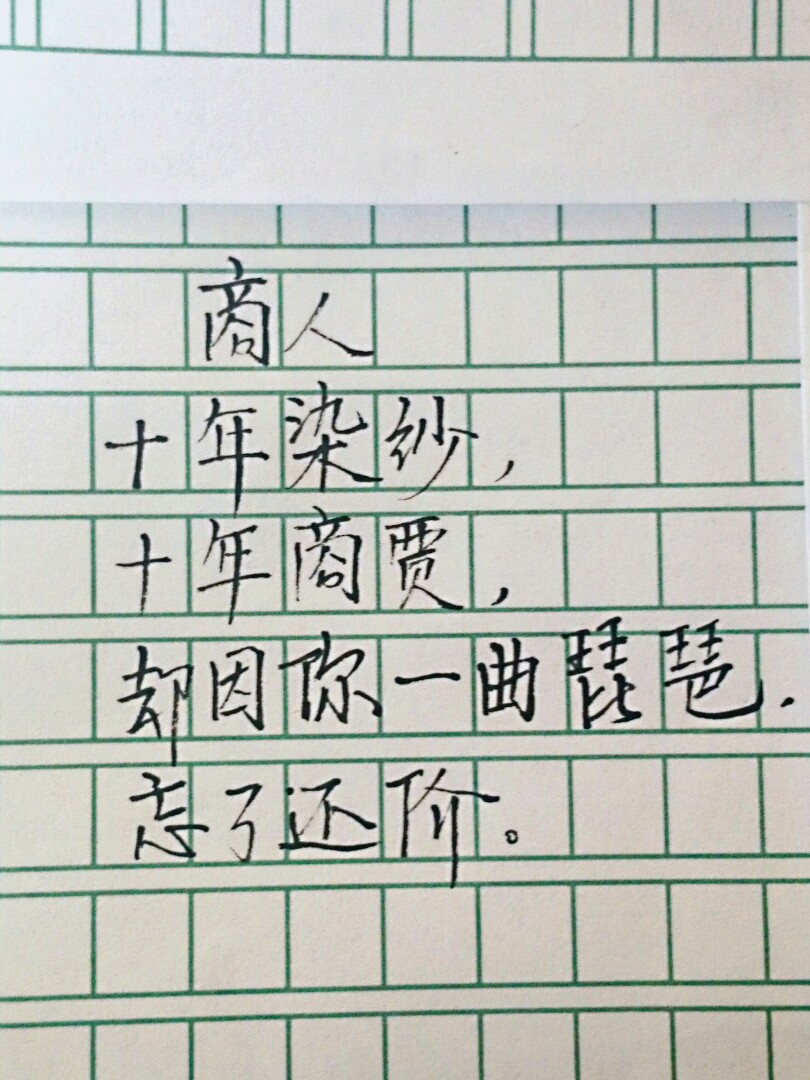 商人
十年染纱，
十年商贾，
却因你一曲琵琶.
忘了还价。